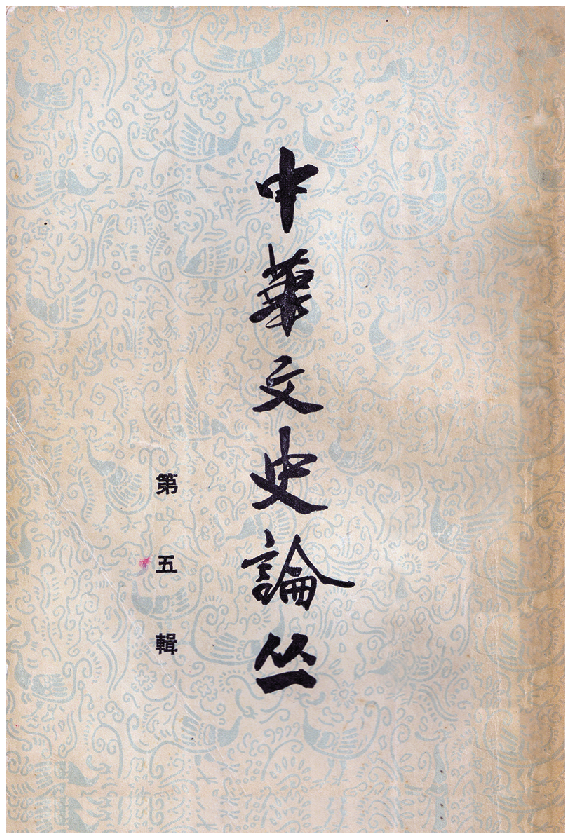 中華文史論丛
第五輯